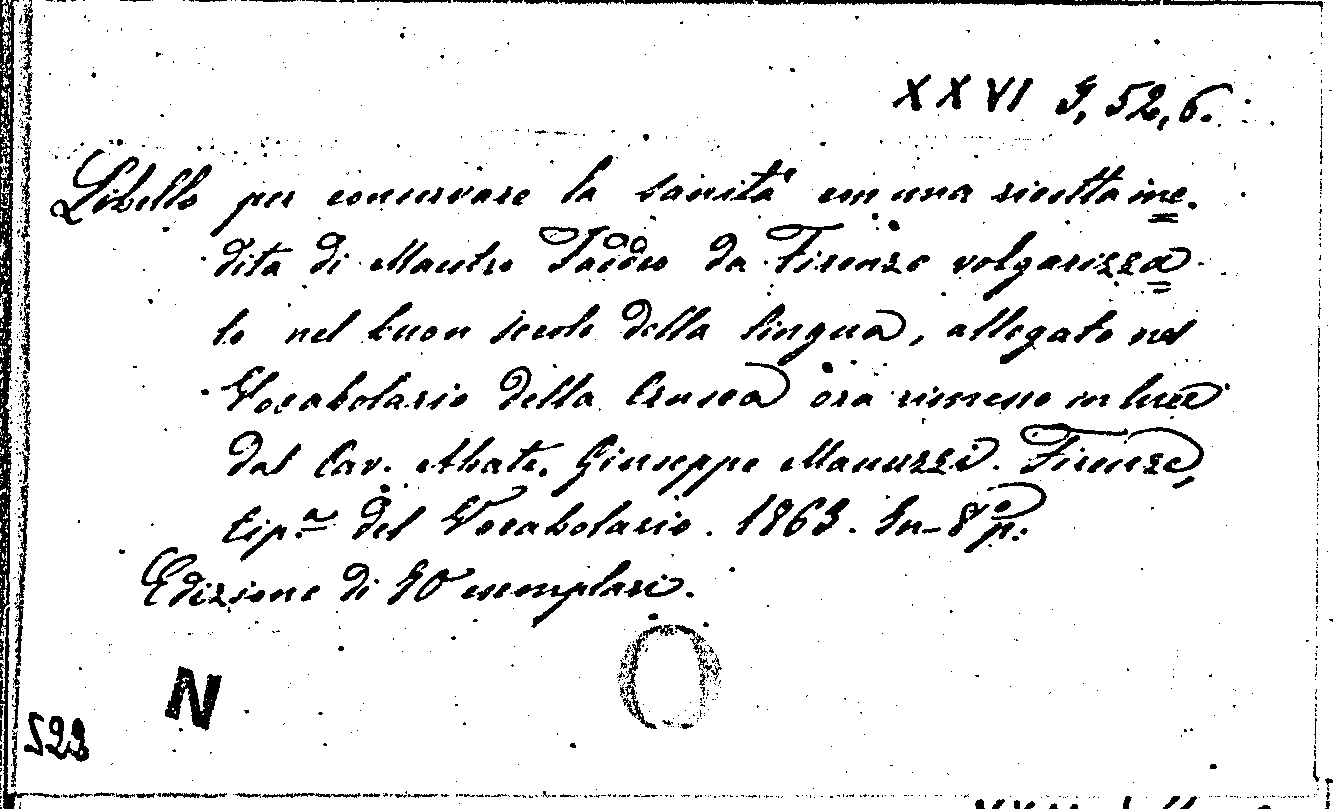 XXVI I, 52, 6.
Libello per conservare la sanità con una ricetta ine-
dita di Maestro Taddeo da Firenze volgarizza
to nel buon secolo della lingua, allegato nel
Vocabolario della Crusca ora rimesso in luce
dal Cav. Abate. Giuseppe Manuzzi. Firenze,
tip.ª del Vocabolario. 1863. In-8° p.
Edizione di 50 esemplari.
N O
522